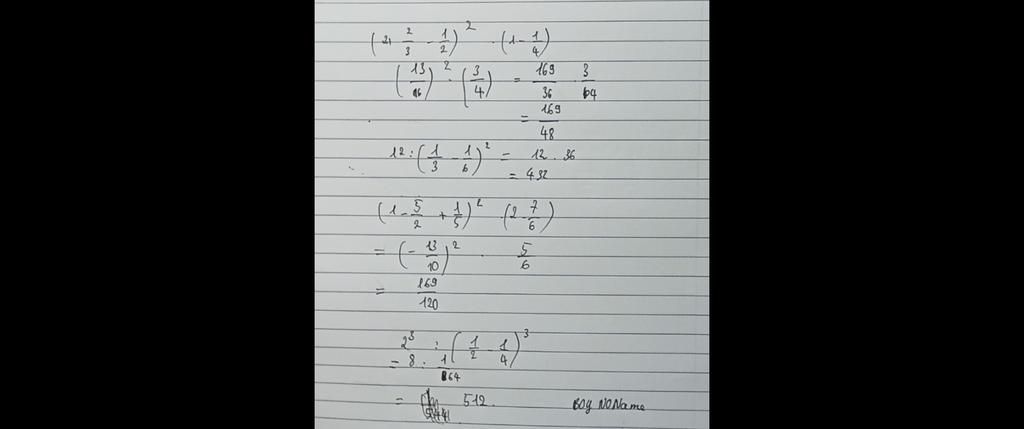 (2 + 2/3 - 1/2)² · (1 - 1/4)
(13/6)² · (3/4) = 169/36 · 3/4
= 169/48
12 : (1/3 - 1/6)² = 12 . 36
= 432
(1 - 5/2 + 1/5)² · (2 - 7/6)
= (- 13/10)² . 5/6
= 169/120
2³ : (1/2 - 1/4)³
= 8 : 1/64
= 512.
Boy NoName